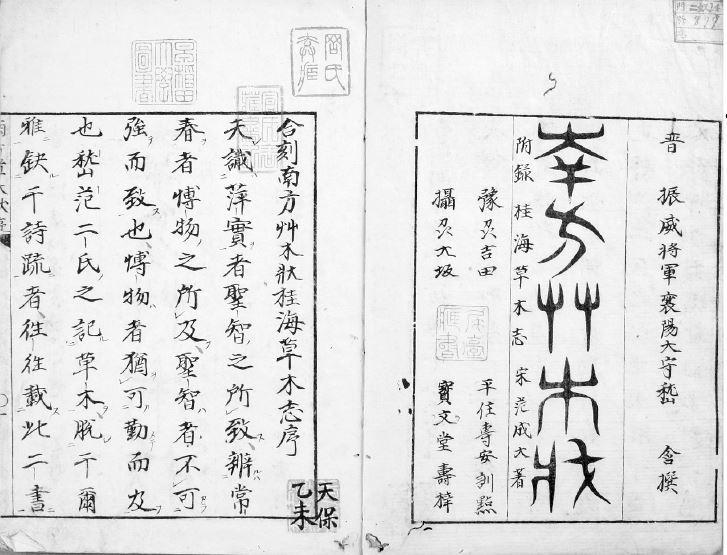 晋 振威将軍襄陽大守嵆 含撰
南方艸木狀
附録 桂海草木志 宋范成大著
豫刕吉田 平住壽安訓點
攝刕大坂 寳文堂壽梓
合刻南方艸木狀桂海草木志序
夫識萍實者聖智之所致辨常
春者博物之所及聖智者不可
強而致也博物者猶可勤而及
也嵆范二氏之記草木脱于爾
雅缺于詩疏者徃徃載此二書
天保
乙未